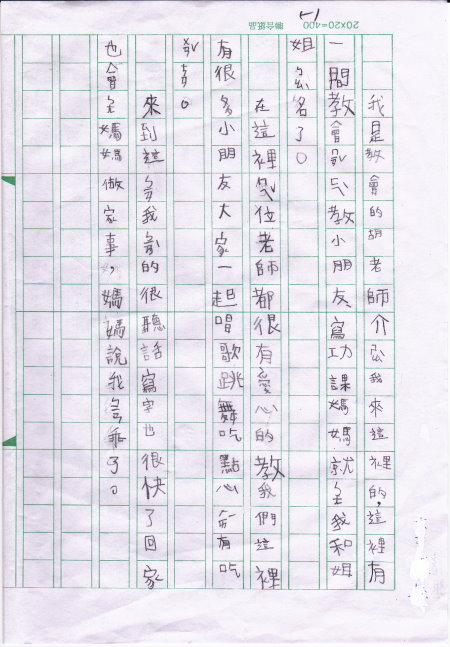 20×20=400 聯合紙品
我是教會的胡老師介 我來這裡的,這裡有
一間教會 教小朋友寫功課媽媽就 我和姐
姐 名了。
在這裡 位老師都很有愛心的教我們這裡
有很多小朋友大家一起唱歌跳舞吃點心 有吃
。
來到這 我 的很聽話寫字也很快了回家
也會 媽媽做家事,媽媽說我 乖了。